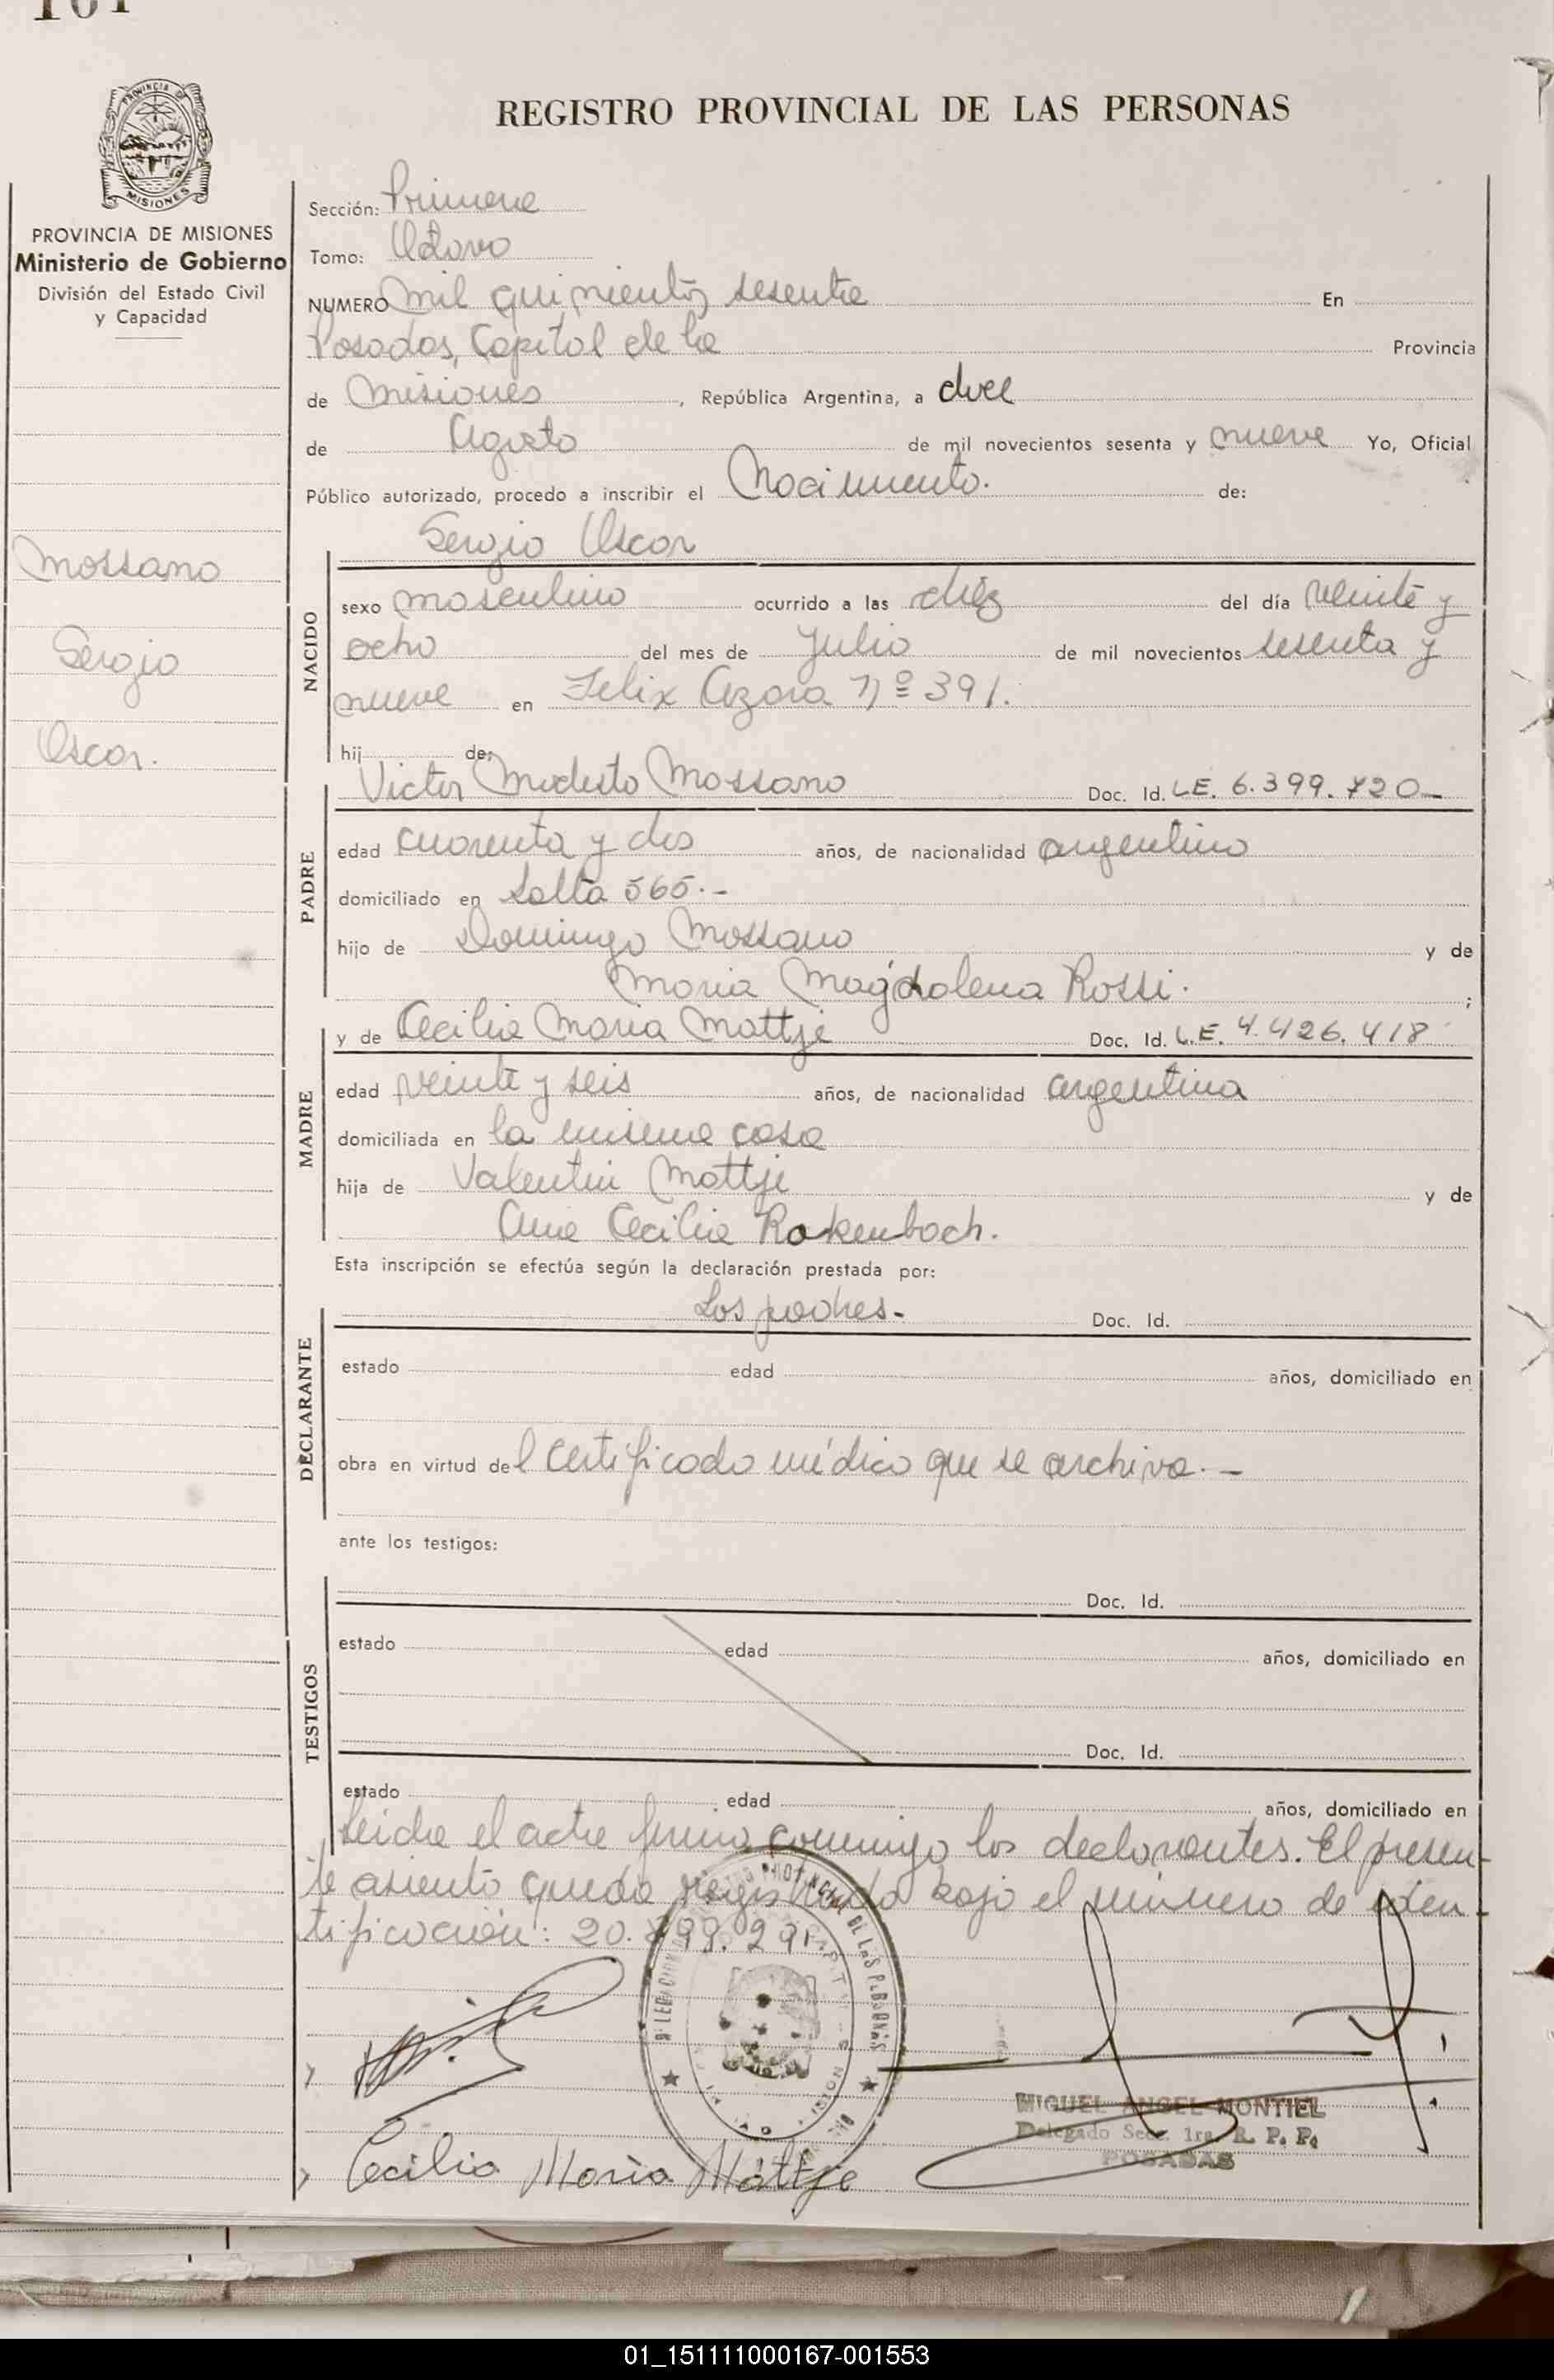 161
REGISTRO PROVINCIAL DE LAS PERSONAS
PROVINCIA DE MISIONES
MISIONES
PROVINCIA DE MISIONES
Ministerio de Gobierno
División del Estado Civil
y Capacidad
Mossano
Sergio
Oscar.
Sección: Primera
Tomo: Octavo
NUMERO mil quinientos sesenta En
Posadas, Capital de la Provincia
de Misiones, República Argentina, a doce
de Agosto de mil novecientos sesenta y nueve Yo, Oficial
Público autorizado, procedo a inscribir el Nacimiento. de:
Sergio Oscar
NACIDO
sexo masculino ocurrido a las diez del día veinte y
ocho del mes de Julio de mil novecientos sesenta y
nueve en Felix Azara Nº 391.
hij de:
Victor Modesto Mossano Doc. Id. LE. 6.399.720-
PADRE
edad cuarenta y dos años, de nacionalidad argentino
domiciliado en Salta 565.-
hijo de Domingo Mossano y de
Maria Magdalena Rossi. ;
y de Cecilia Maria Mattje Doc. Id. L.E. 4.426.418
MADRE
edad veinte y seis años, de nacionalidad argentina
domiciliada en la misma casa
hija de Valentin Mattje y de
Ana Cecilia Rokenbach.
Esta inscripción se efectúa según la declaración prestada por:
Los padres- Doc. Id.
DECLARANTE
estado edad años, domiciliado en
obra en virtud del certificado médico que se archiva.-
ante los testigos:
Doc. Id.
TESTIGOS
estado edad años, domiciliado en
Doc. Id.
estado edad años, domiciliado en
Leida el acta firma conmigo los declarantes. El presen-
te asiento queda registrado bajo el número de iden-
tificación: 20.
MIGUEL ANGEL MONTIEL
Delegado Sec. 1ra. R. P. P.
POSADAS
Cecilia Maria Mattje
01_151111000167-001553